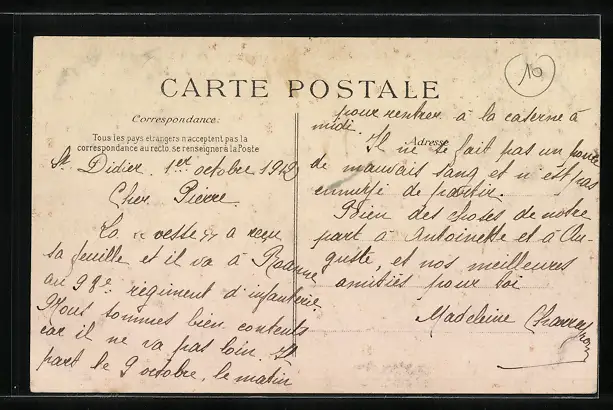 CARTE POSTALE
16
Correspondance:
Tous les pays étrangers n'acceptent pas la
correspondance au recto, se renseigner à la Poste
St Didier 1er octobre 1912
Cher Pierre
La « veste » a reçu
sa feuille et il va à Roanne
au 98e régiment d'infanterie.
Nous sommes bien contents
car il ne va pas loin. Il
part le 9 octobre, le matin
pour rentrer à la caserne à
midi.
Adresse
Il ne se fait pas un
de mauvais sang et n'est pas
ennuyé de partir.
Bien des choses de notre
part à Antoinette et à Au-
guste, et nos meilleures
amitiés pour toi
Madeleine